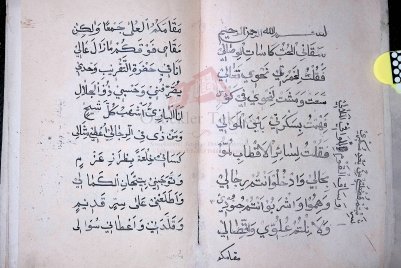 بسم الله الرحمن الرحيم
سقاني الحب كاسات الوصال
فقلت لخمرتي نحوي تعالي
سعت ومشت لنحوي في كوس
فهمت بسكرتي بين الموالي
فقلت لسائر الاقطاب لموا
بحالي وادخلوا انتم رجالي
وهموا واشربوا انتم جنودي
نلتم علوي واتصالي
مقامكم
شربتم فضلتي من بعد سكري
مقامكم العلى جمعا ولكن
مقامي فوقكم ما زال عالي
انا في حضرة التقريب وحدي
يصرفني وحسبي ذو الجلال
انا البازي اشهب كل شيخ
ومن ذي في الرجال اعطي مثالي
كساني خلعة بطراز عزم
وتوجني بتيجان الكمالي
واطلعني على سر قديم
وقلدني واعطاني سوالي